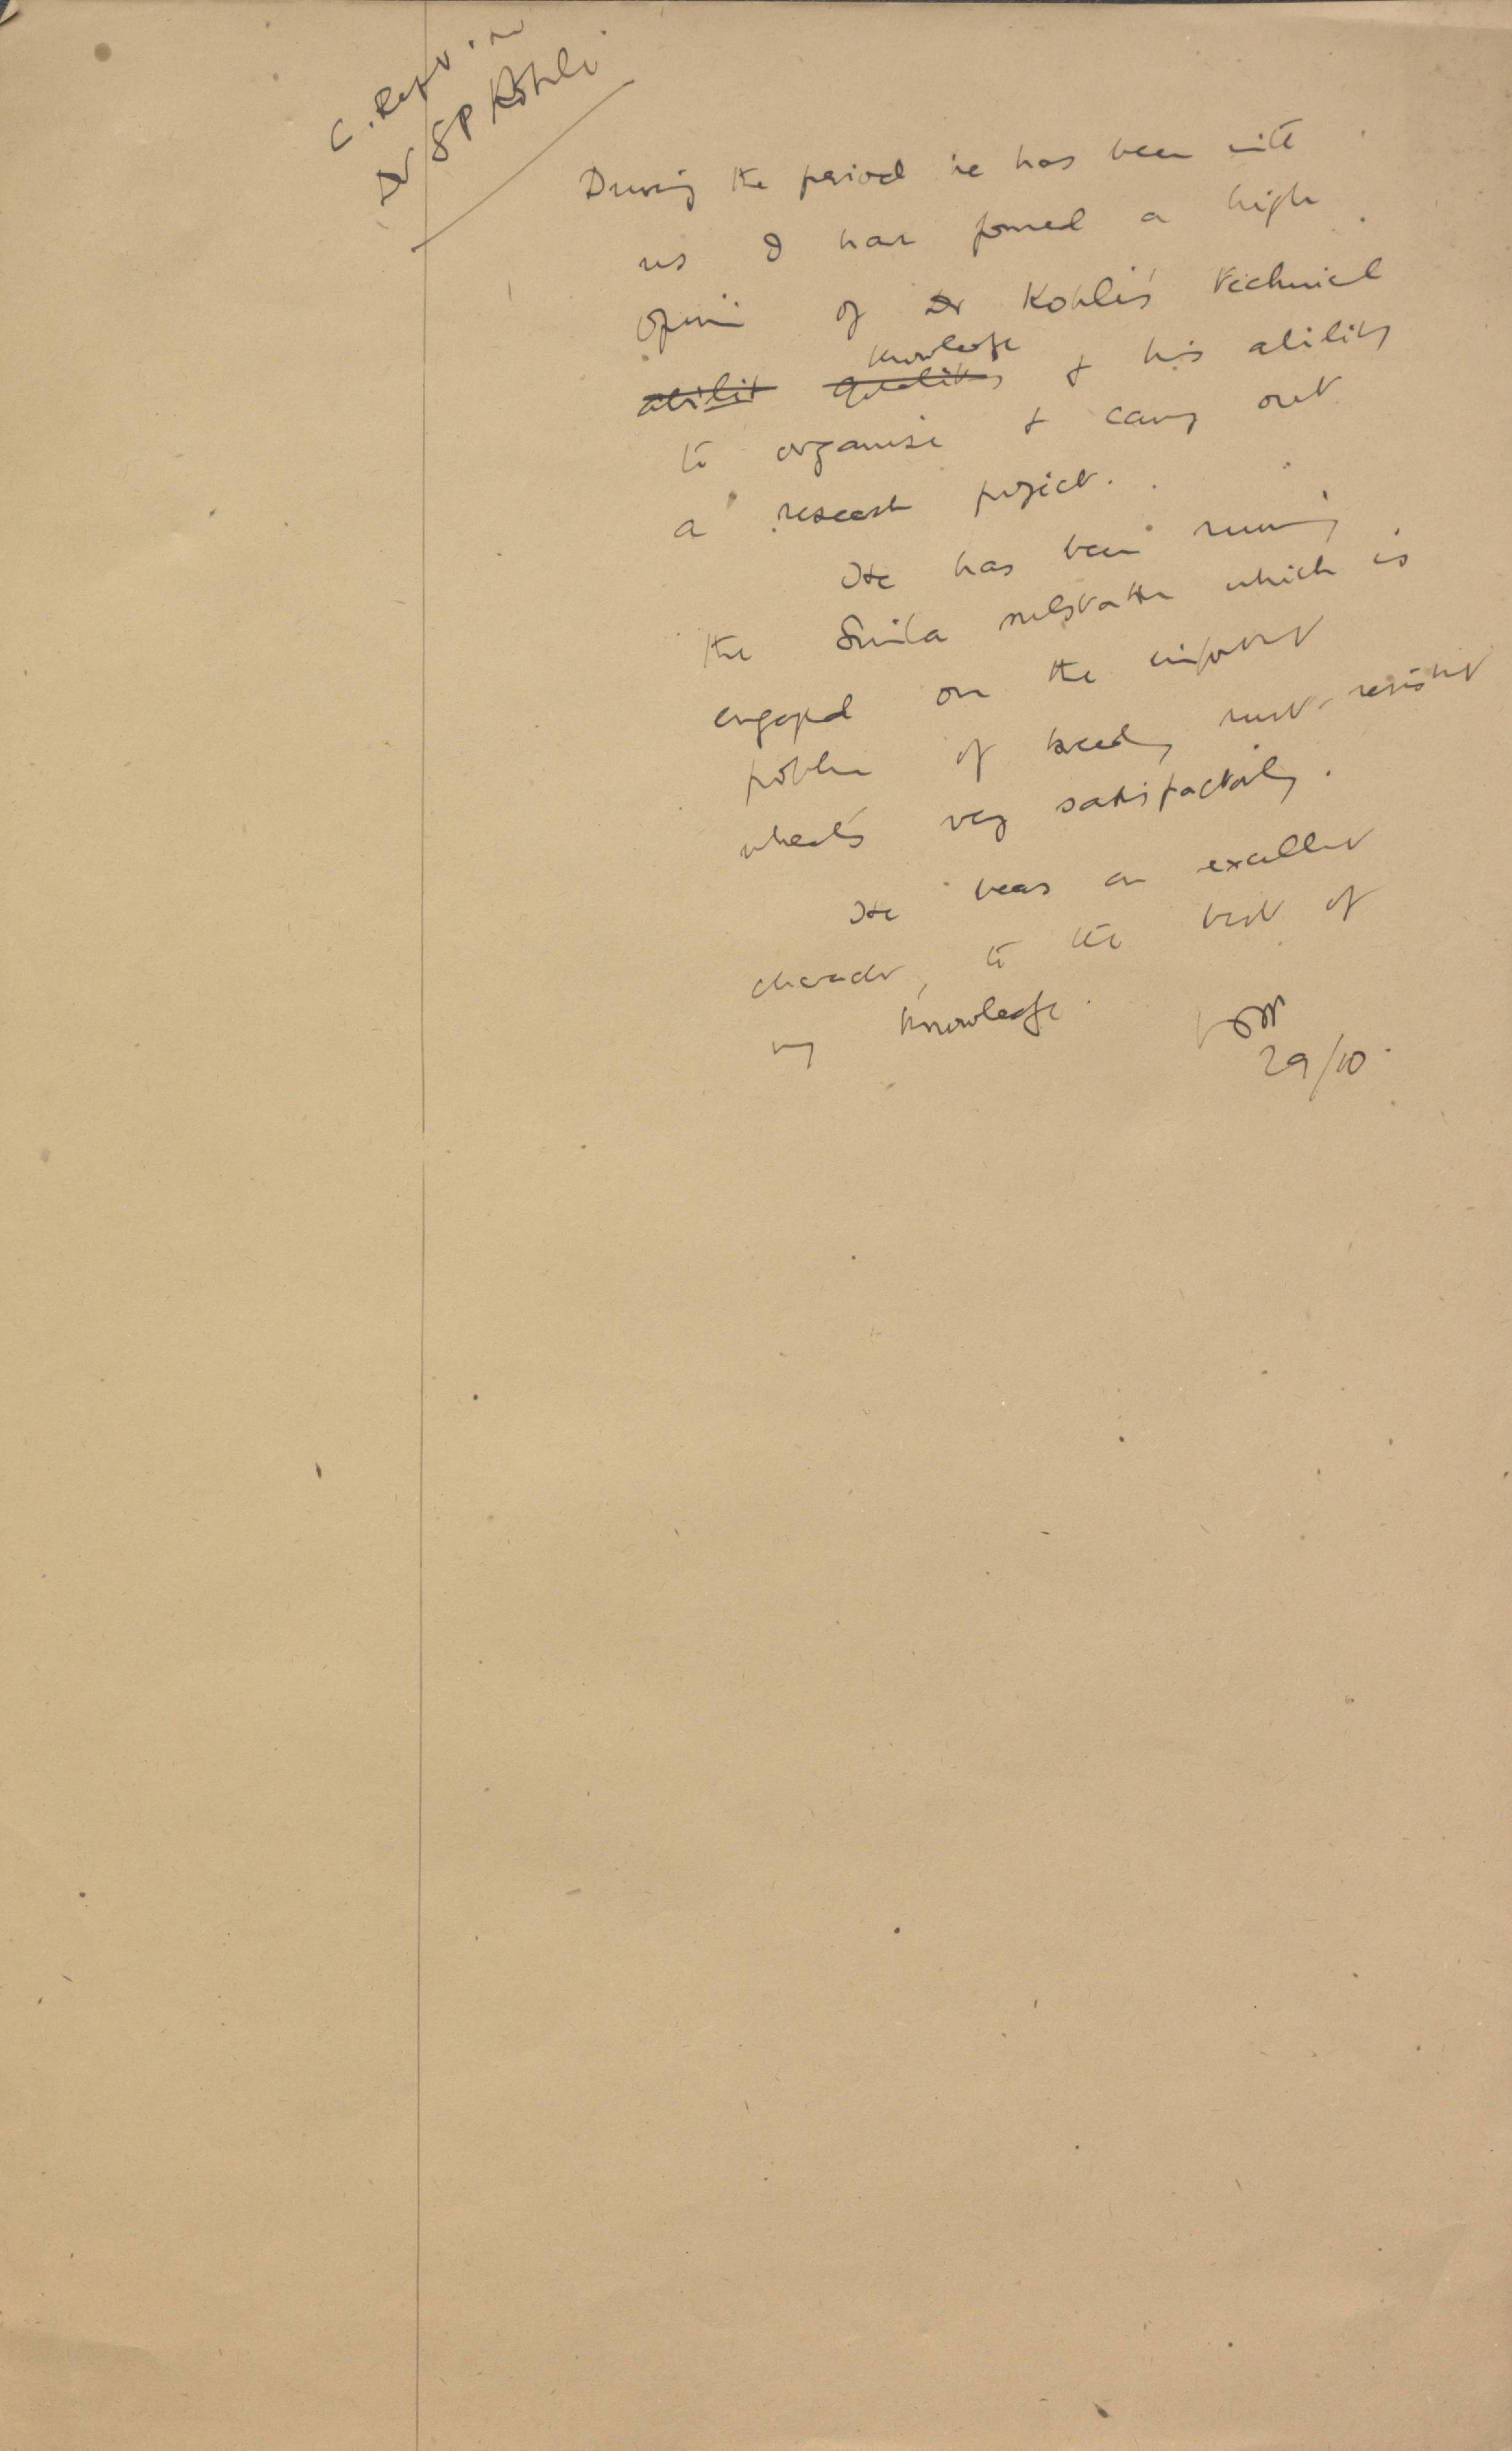 C. Report on
Dr SP Kohli
During the period he has been with
us I have formed a high
opinion of Dr Kohli's technical
knowledge
abilit qualities & his ability
to organise & carry out
a research project.
He has been running
the Simla substation which is
engaged on the important
problem of breeding rust-resistant
wheats very satisfactorily.
He bears an excellent
character, to the best of
my knowledge.
29/10